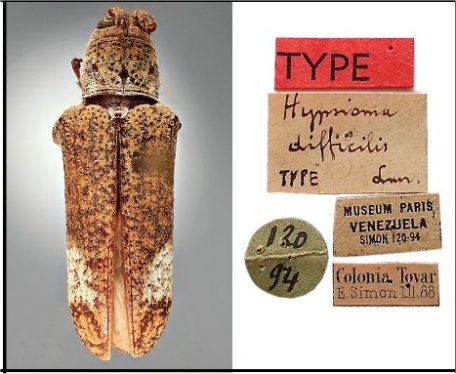 TYPE
Hypsioma
difficilis
TYPE Lan.
MUSEUM PARIS
VENEZUELA
SIMON 120-94
120
94
Colonia Tovar
E. Simon I.II.88